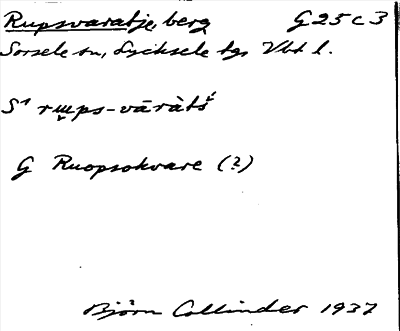 Rupsvaratje, berg G25c3
Sorsele sn, Lycksele tgs Vbt l.
S¹ rɯ̭ps-vāràtś
G Ruopsokvare (?)
Björn Collinder 1937